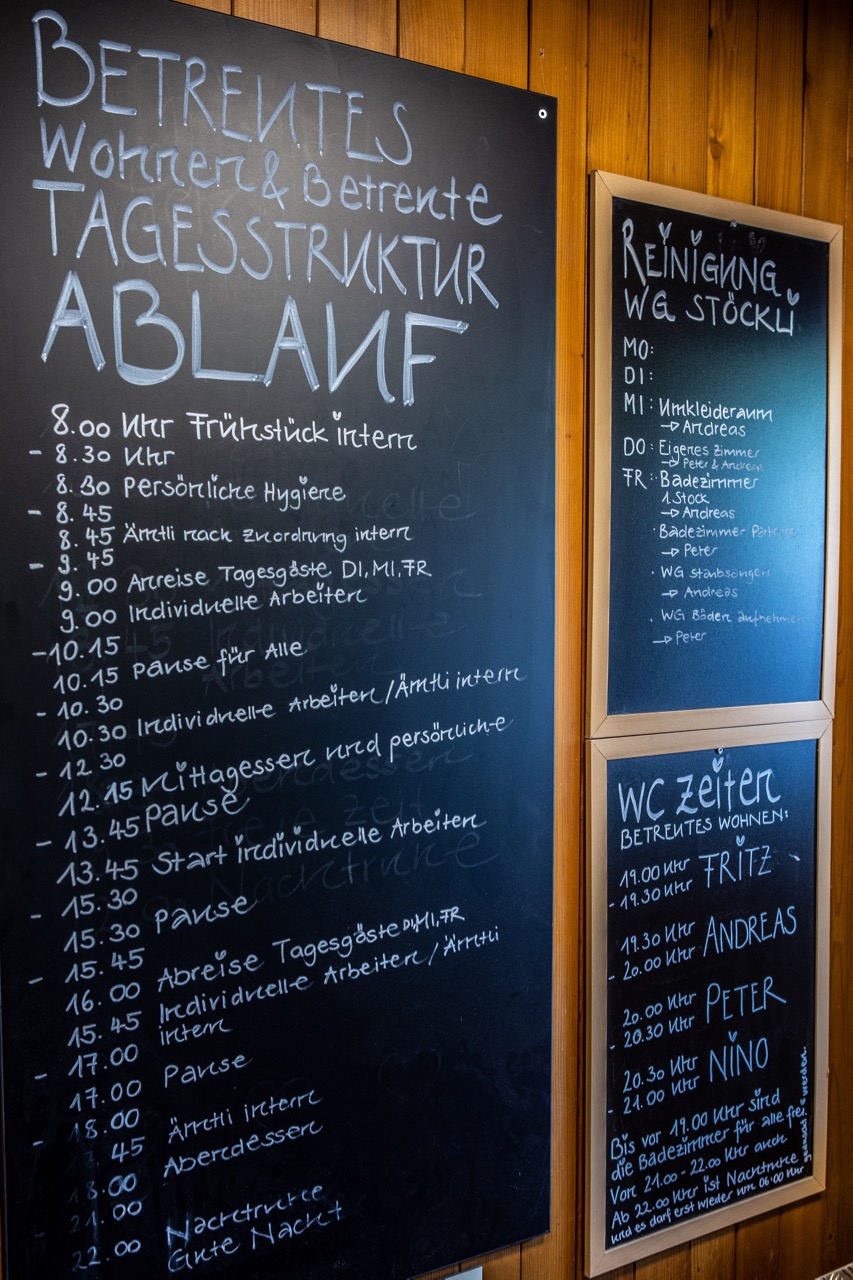 BETREUTES
Wohnen & Betreute
TAGESSTRUKTUR
ABLAUF
8.00 Uhr Frühstück intern
- 8.30 Uhr
8.30 Persönliche Hygiene
- 8.45
8.45 Ämtli nach Zuordnung intern
- 9.45
9.00 Anreise Tagesgäste DI, MI, FR
9.00 Individuelle Arbeiten
- 10.15
10.15 Pause für Alle
- 10.30
10.30 Individuelle Arbeiten / Ämtli intern
- 12.30
12.15 Mittagessen und persönliche
- 13.45 Pause
13.45 Start individuelle Arbeiten
- 15.30
15.30 Pause
- 15.45
16.00 Abreise Tagesgäste DI, MI, FR
15.45 Individuelle Arbeiten / Ämtli
- 17.00 intern
17.00 Pause
- 18.00
45 Ämtli intern
18.00 Abendessen
21.00
22.00 Nachtruhe
Gute Nacht
REiNiGUNG
WG STÖCKLi
MO:
DI:
MI: Umkleideraum
→ Andreas
DO: Eigenes Zimmer
→ Peter & Andreas
FR: Badezimmer
1. Stock
→ Andreas
· Badezimmer
→ Peter
· WG staubsaugen
→ Andreas
· WG Böden aufnehmen
→ Peter
WC Zeiten
BETREUTES WOHNEN:
19.00 Uhr
- 19.30 Uhr FRITZ
19.30 Uhr
- 20.00 Uhr ANDREAS
20.00 Uhr
- 20.30 Uhr PETER
20.30 Uhr
- 21.00 Uhr NiNO
Bis vor 19.00 Uhr sind
die Badezimmer für alle frei
Von 21.00 - 22.00 Uhr auch
Ab 22.00 Uhr ist Nachtruhe
und es darf erst wieder um 06:00 Uhr
geduscht werden.